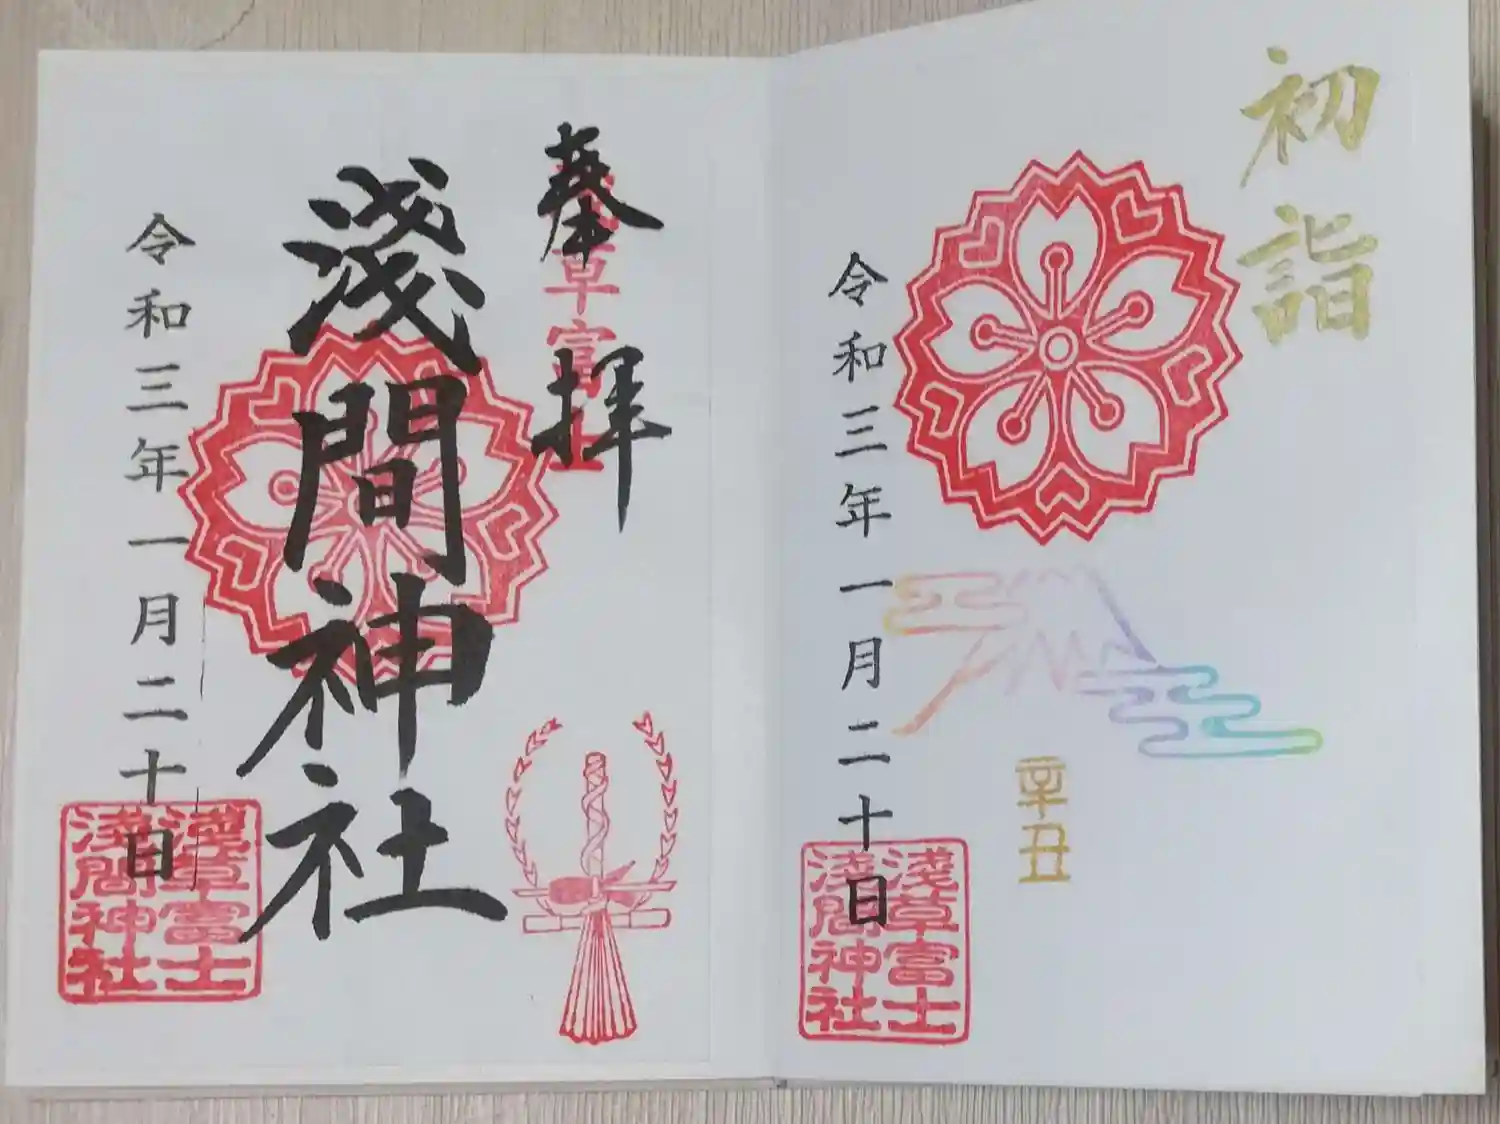 初詣
令和三年一月二十日
辛丑
淺草富士
淺間神社
奉拝
草富士
淺間神社
令和三年一月二十日
淺草富士
淺間神社